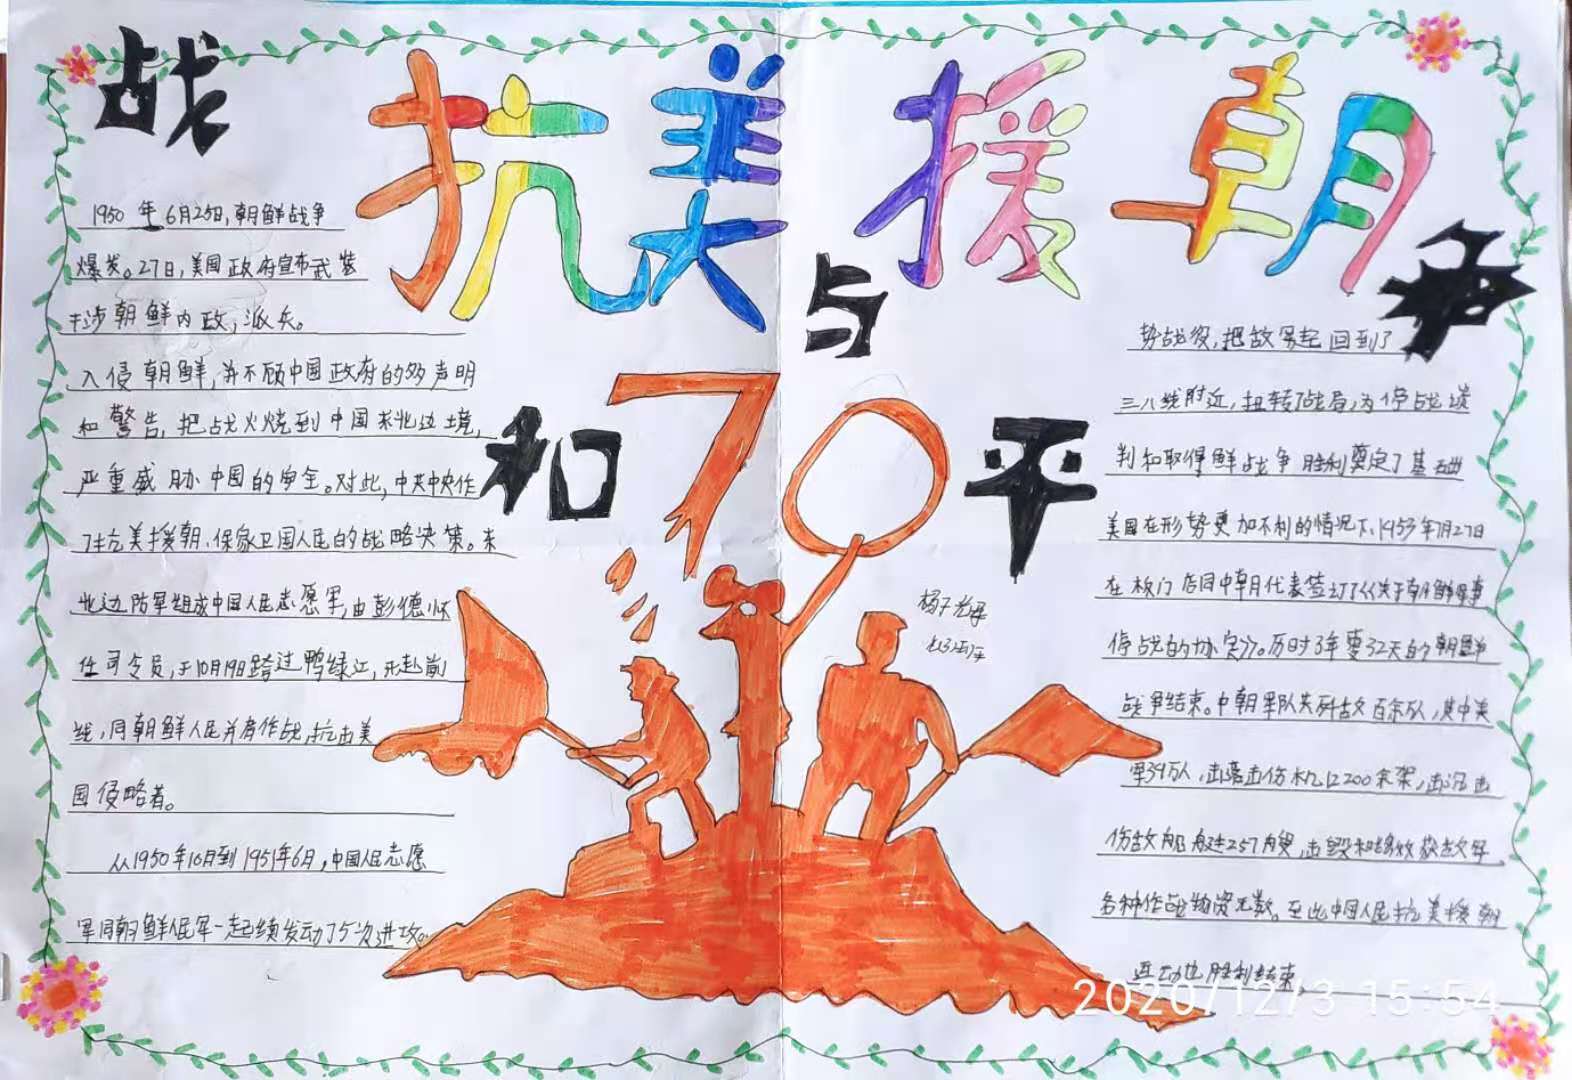 战
抗美援朝
争
与
和
70
平
1950年6月25日,朝鲜战争
爆发。27日,美国政府宣布武装
干涉朝鲜内政,派兵。
入侵朝鲜,并不顾中国政府的多声明
和警告,把战火烧到中国东北边境,
严重威胁中国的安全。对此,中共中央作
了抗美援朝、保家卫国人民的战略决策。东
北边防军组成中国人民志愿军,由彭德怀
任司令员,于10月19日跨过鸭绿江,开赴前
线,同朝鲜人民并肩作战,抗击美
国侵略者。
从1950年10月到1951年6月,中国人民志愿
军同朝鲜人民军一起续发动了5次进攻。
势战役,把敌军赶回到了
三八线附近,扭转了战局,为停战谈
判和取得鲜战争胜利奠定了基础
美国在形势更加不利的情况下,1953年7月27日
在板门店同中朝代表签订了《关于朝鲜军事
停战的协定》。历时3年零32天的朝鲜
战争结束。中朝军队共歼敌百余队,其中美
军39万人,击落击伤机12200余架,击沉击
伤敌船舰艇257艘,击毁和缴获敌军
各种作战物资无数。至此中国人民抗美援朝
运动也胜利结束。
2020/12/3 15:54